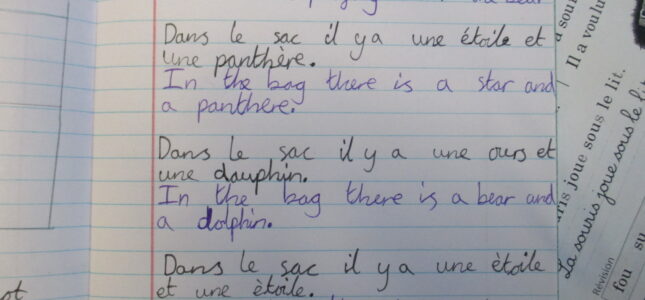 Dans le sac il y a une étoile et
une panthère.
In the bag there is a star and
a panthere.
Dans le sac il y a une ours et
une dauphin.
In the bag there is a bear and
a dolphin.
Dans le sac il y a une ètoile
et une ètoile.
Il a voulu
ris joue sous le lit.
La souris joue sous le li
Révision
fou su